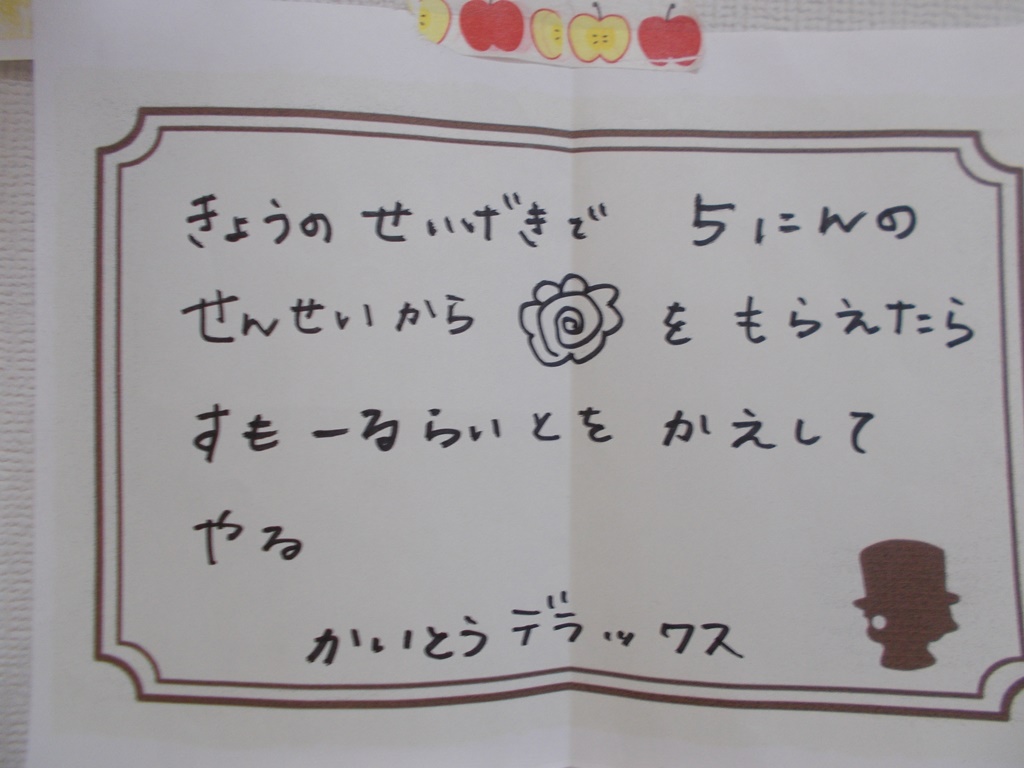 きょうの せいげきで 5にんの
せんせいから をもらえたら
すもーるらいとを かえして
やる
かいとうデラックス